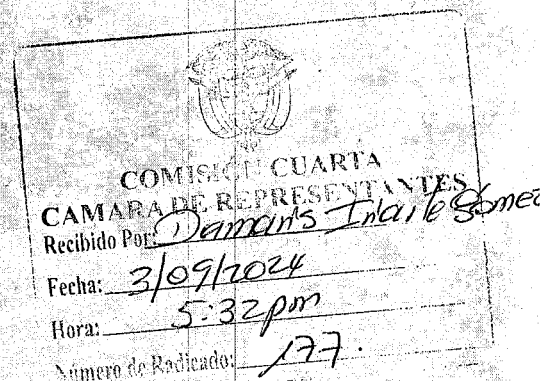 COMISIÓN CUARTA
CAMARA DE REPRESENTANTES
Recibido Por: Damaris Gómez
Fecha: 3/09/2024
Hora: 5:32pm
Número de Radicado: 177.